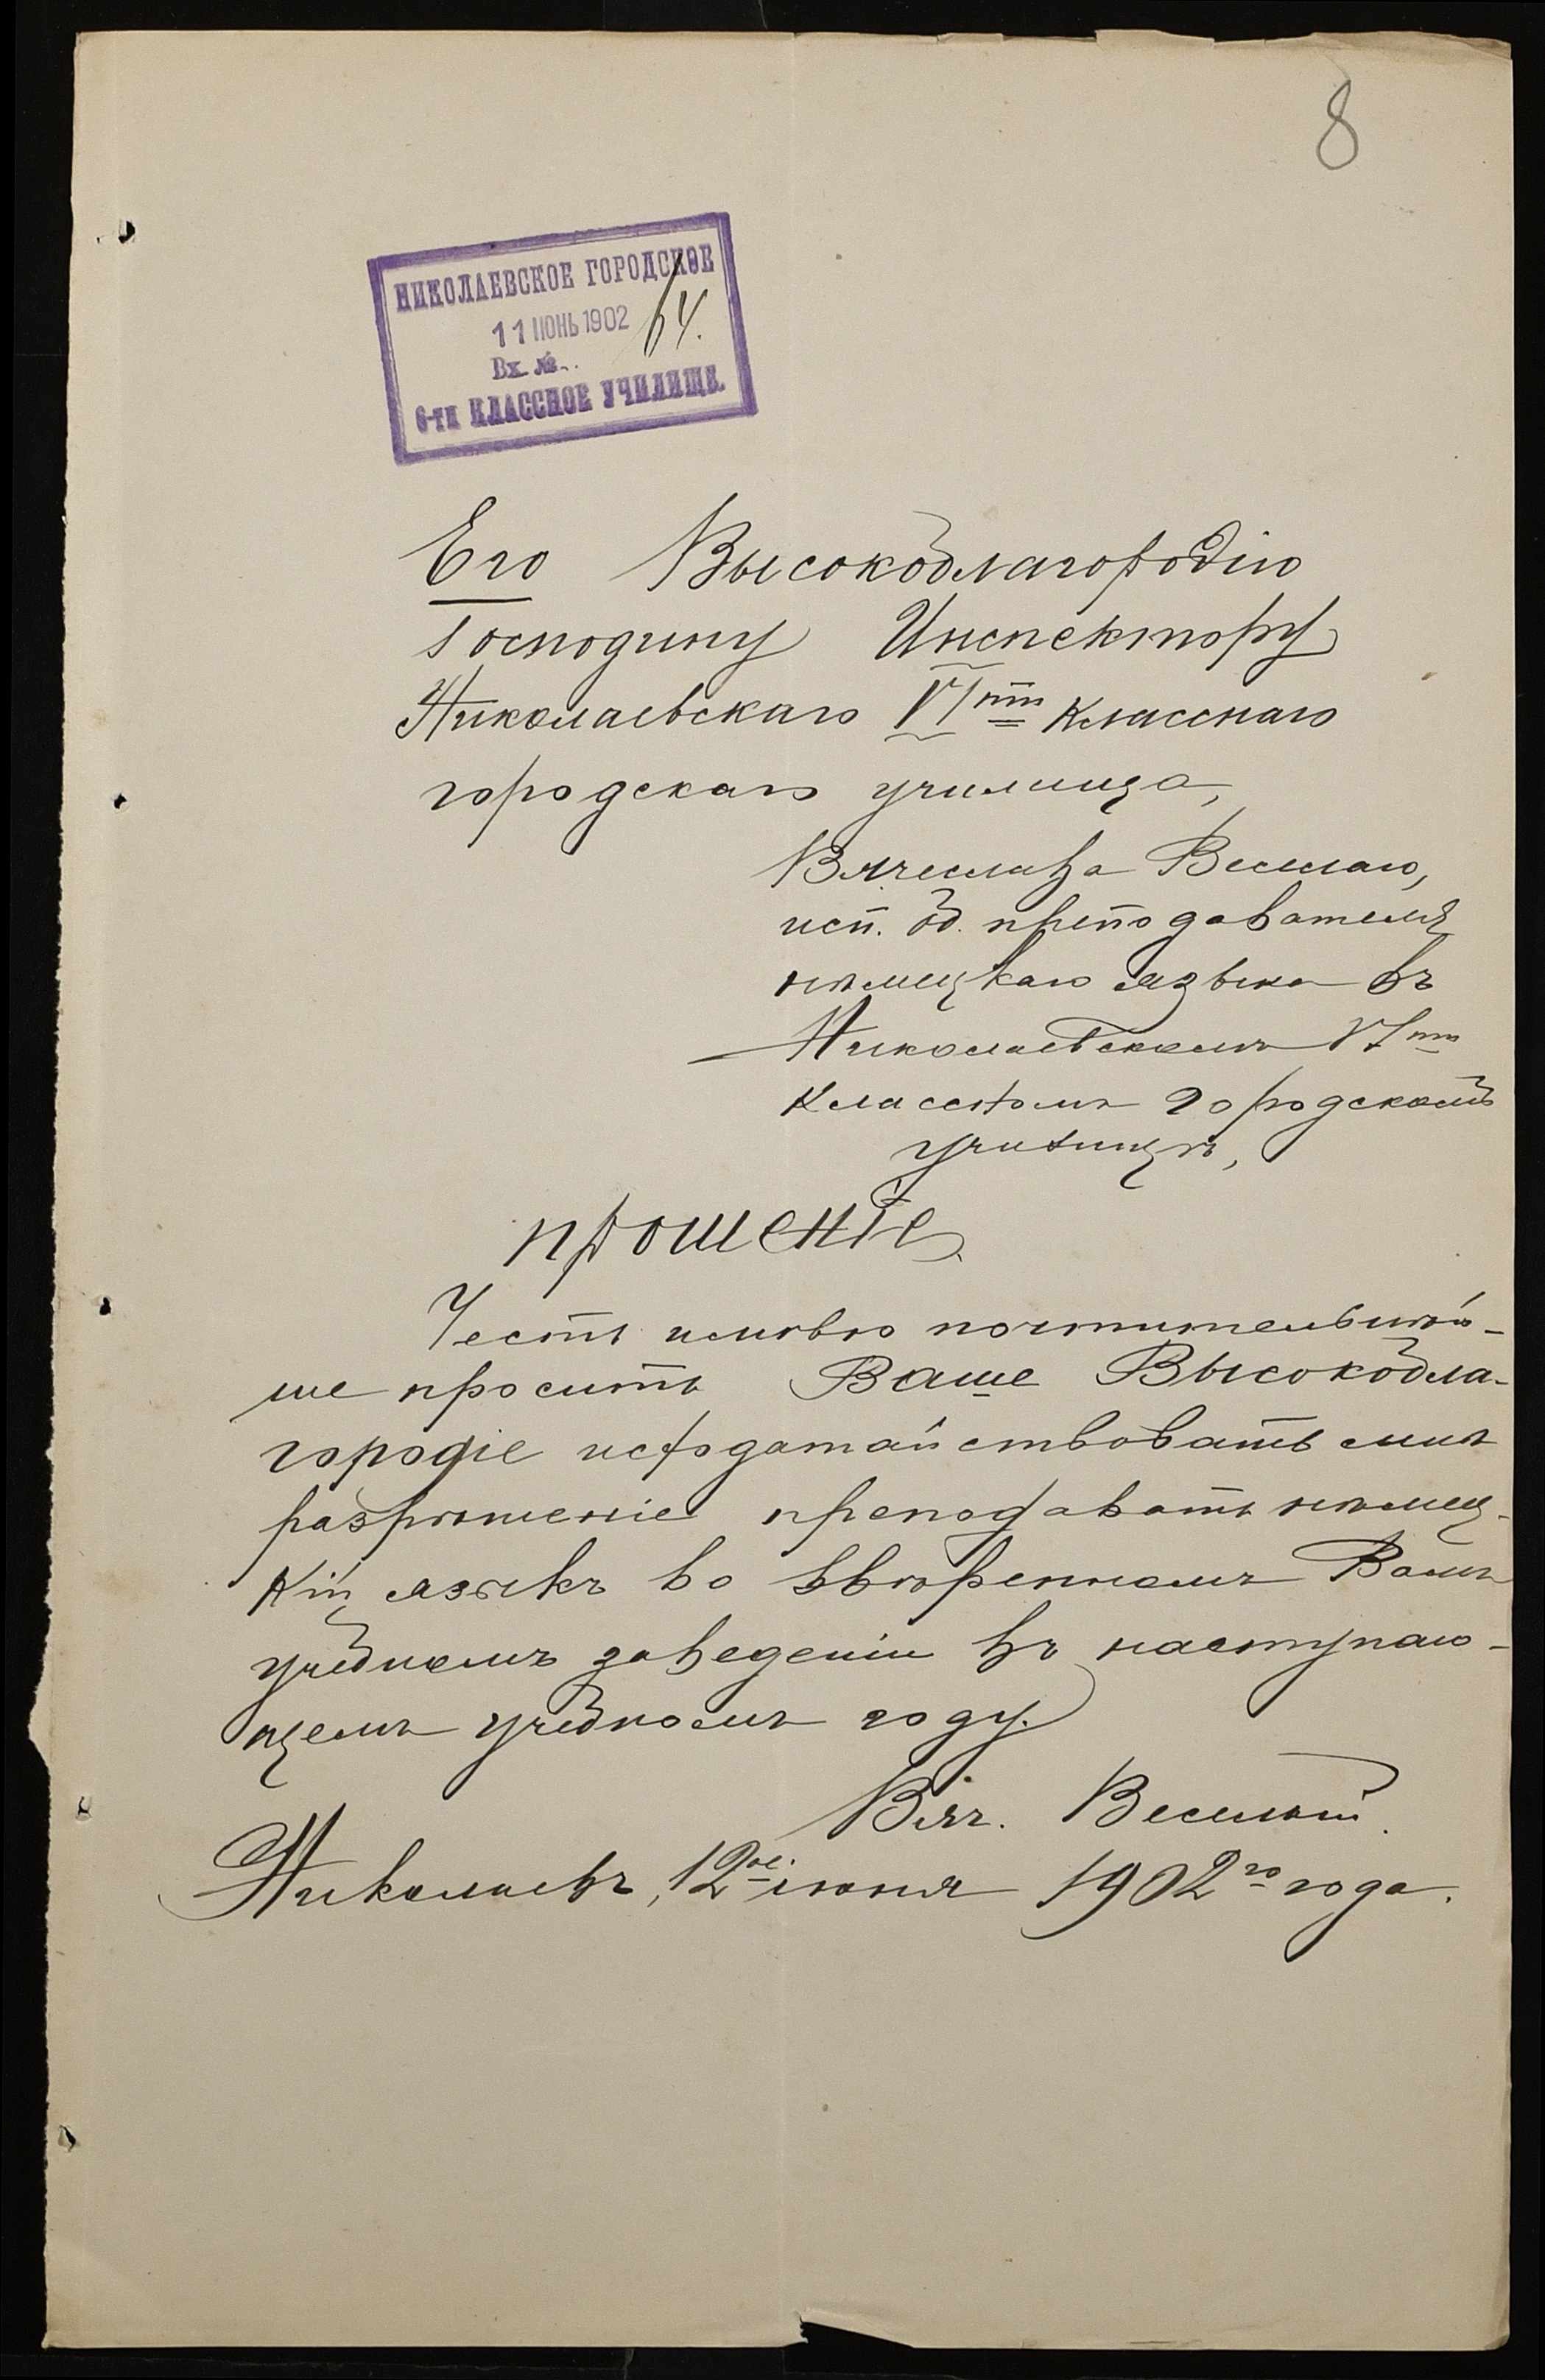 8
НИКОЛАЕВСКОЕ ГОРОДСКОЕ
11 ІЮНЬ 1902 64.
Вх. №
6-ти КЛАССНОЕ УЧИЛИЩЕ.
Его Высокоблагородію
Господину Инспектору
Николаевскаго VIти Класснаго
городскаго училища,
Вячеслава Веселаго,
исп. об. преподавателя
нѣмецкаго языка въ
Николаевскомъ VIти
Классномъ городскомъ
училищѣ,
прошеніе.
Честь имѣю почтительнѣй-
ше просить Ваше Высокобла-
городіе исходатайствовать мнѣ
разрѣшеніе преподавать нѣмец-
кій языкъ во ввѣренномъ Вамъ
учебномъ заведеніи въ наступаю-
щемъ учебномъ году.
Вяч. Веселый.
Николаевъ, 12ое іюня 1902го года.